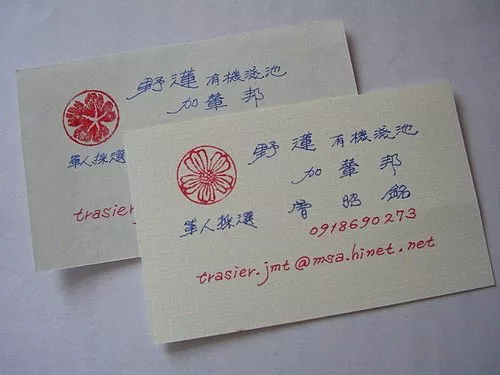 野蓮 有機淺池
加輦邦
單人採選
trasier.
野蓮 有機淺池
加輦邦
單人採選 曾昭銘
0918690273
trasier.jmt@msa.hinet.net